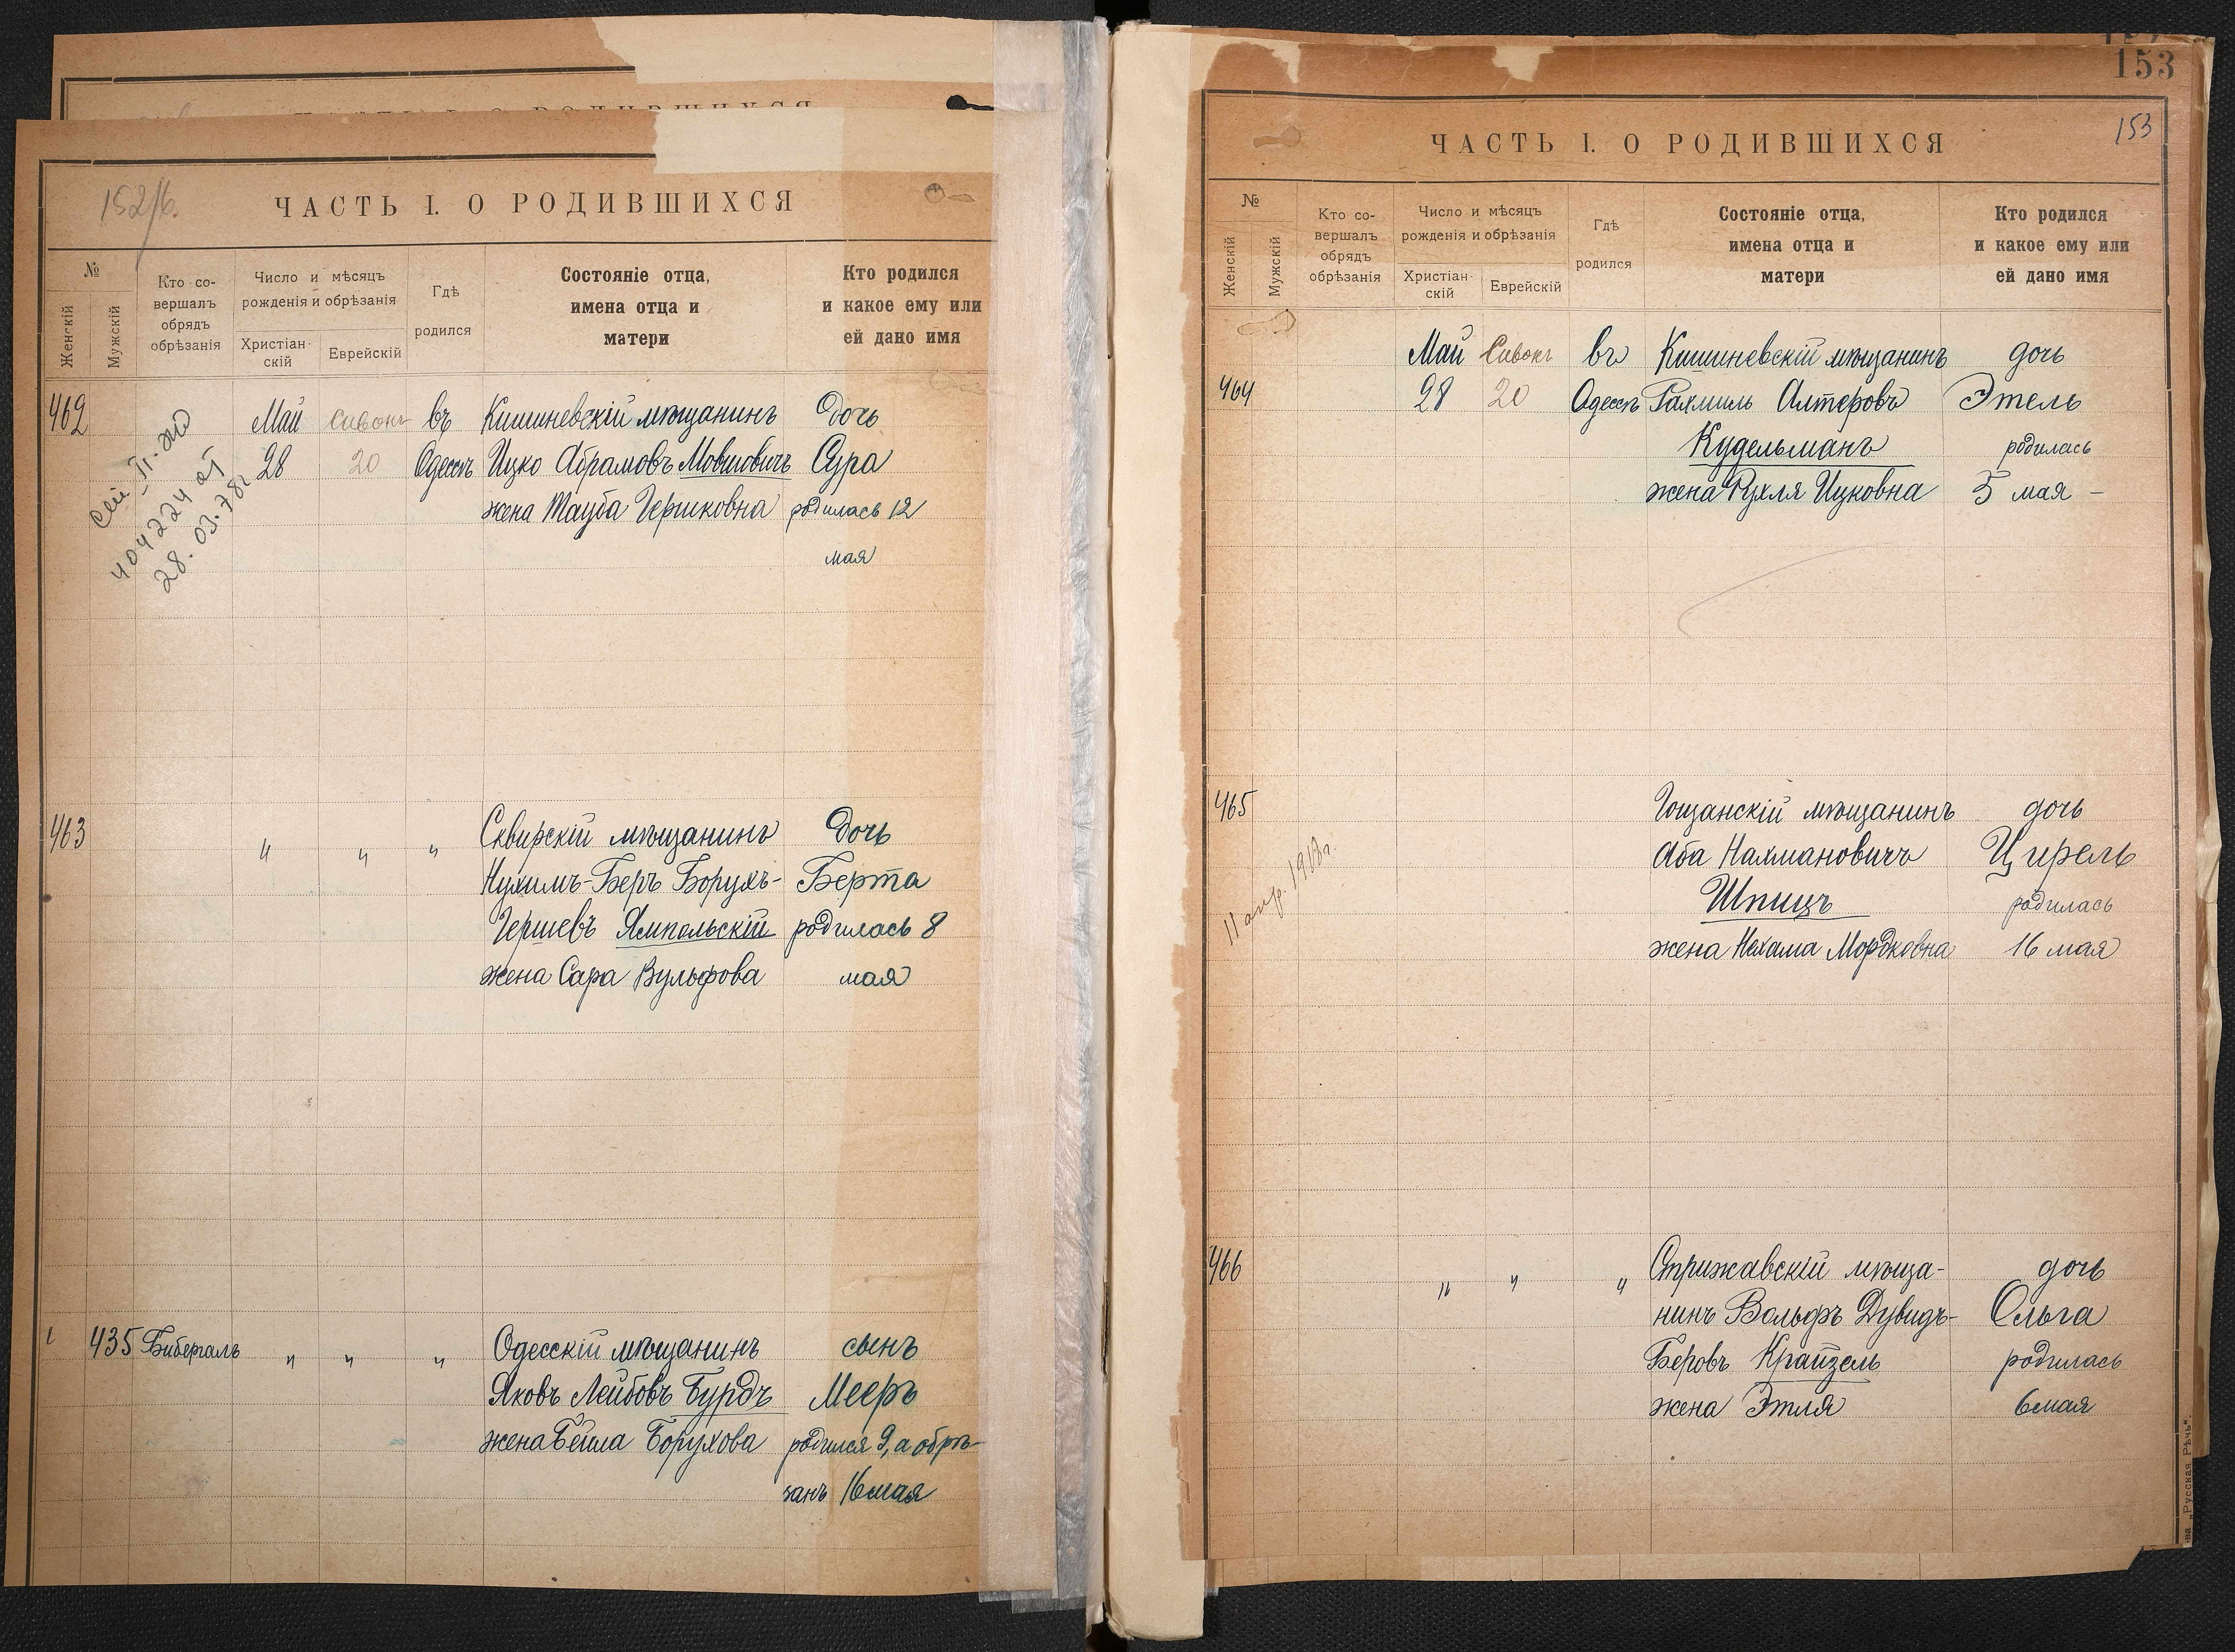 152/б.
ЧАСТЬ I. О РОДИВШИХСЯ
№
Женскій
Мужскій
Кто со-
вершалъ
обрядъ
обрѣзанія
Число и мѣсяцъ
рожденія и обрѣзанія
Христіан-
скій
Еврейскій
Гдѣ
родился
Состояніе отца,
имена отца и
матери
Кто родился
и какое ему или
ей дано имя
462 Май Сивонъ въ Кишиневскій мѣщанинъ Дочь
28 20 Одессѣ Ицко Абрамовъ Мовшовичъ Сура
жена Тауба Гершковна родилась 12
мая
404224 от
28.03.78г
463 " " " Сквирскій мѣщанинъ Дочь
Нухимъ-Беръ Борухъ- Берта
Гершевъ Ямпольскій родилась 8
жена Сара Вульфова мая
435 Бибергалъ " " " Одесскій мѣщанинъ сынъ
Яковъ Лейбовъ Бурдъ Мееръ
жена Бейла Борухова родился 9, а обрѣ-
занъ 16 мая
153
153
ЧАСТЬ I. О РОДИВШИХСЯ
№
Женскій
Мужскій
Кто со-
вершалъ
обрядъ
обрѣзанія
Число и мѣсяцъ
рожденія и обрѣзанія
Христіан-
скій
Еврейскій
Гдѣ
родился
Состояніе отца,
имена отца и
матери
Кто родился
и какое ему или
ей дано имя
Май Сивонъ въ Кишиневскій мѣщанинъ дочь
464 28 20 Одессѣ Рахмиль Алтеровъ Этель
Кудельманъ родилась
жена Рухля Ицковна 5 мая -
465 Гощанскій мѣщанинъ дочь
Аба Нахмановичъ Цирель
Шпицъ родилась
жена Нехама Мордковна 16 мая
11 апр. 1918г.
466 " " " Стрижавскій мѣща- дочь
нинъ Вольфъ Дувидъ- Ольга
Беровъ Крайзель родилась
жена Этля 6 мая
"Русская Рѣчь".